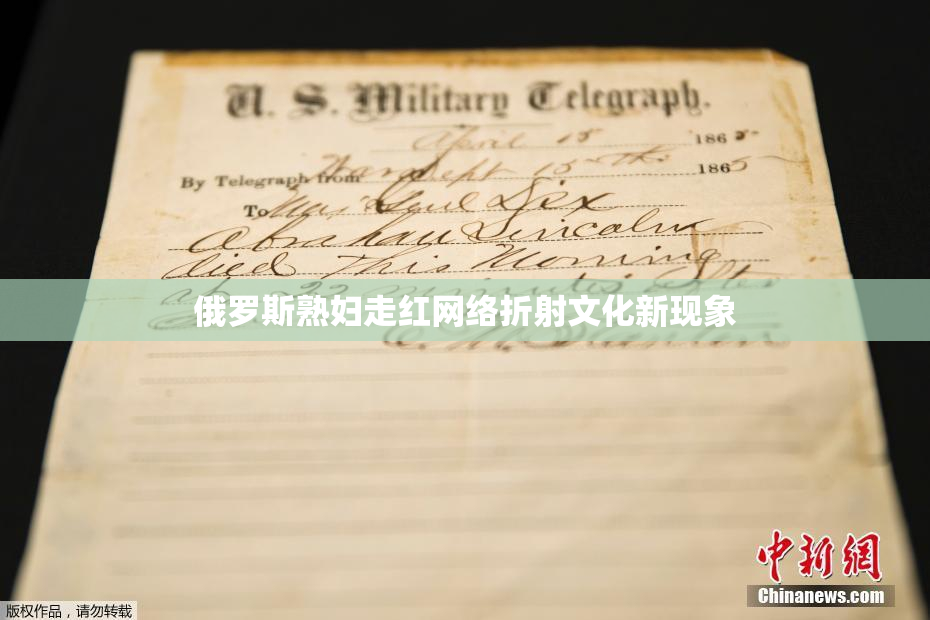 U. S. Military Telegraph.
April 15 1865
By Telegraph from War Dept 15th 1865
To Maj Genl Dix
Abraham Lincoln
died This Morning
at 22 minutes after
俄罗斯熟妇走红网络折射文化新现象
中新网
Chinanews.com
版权作品，请勿转载